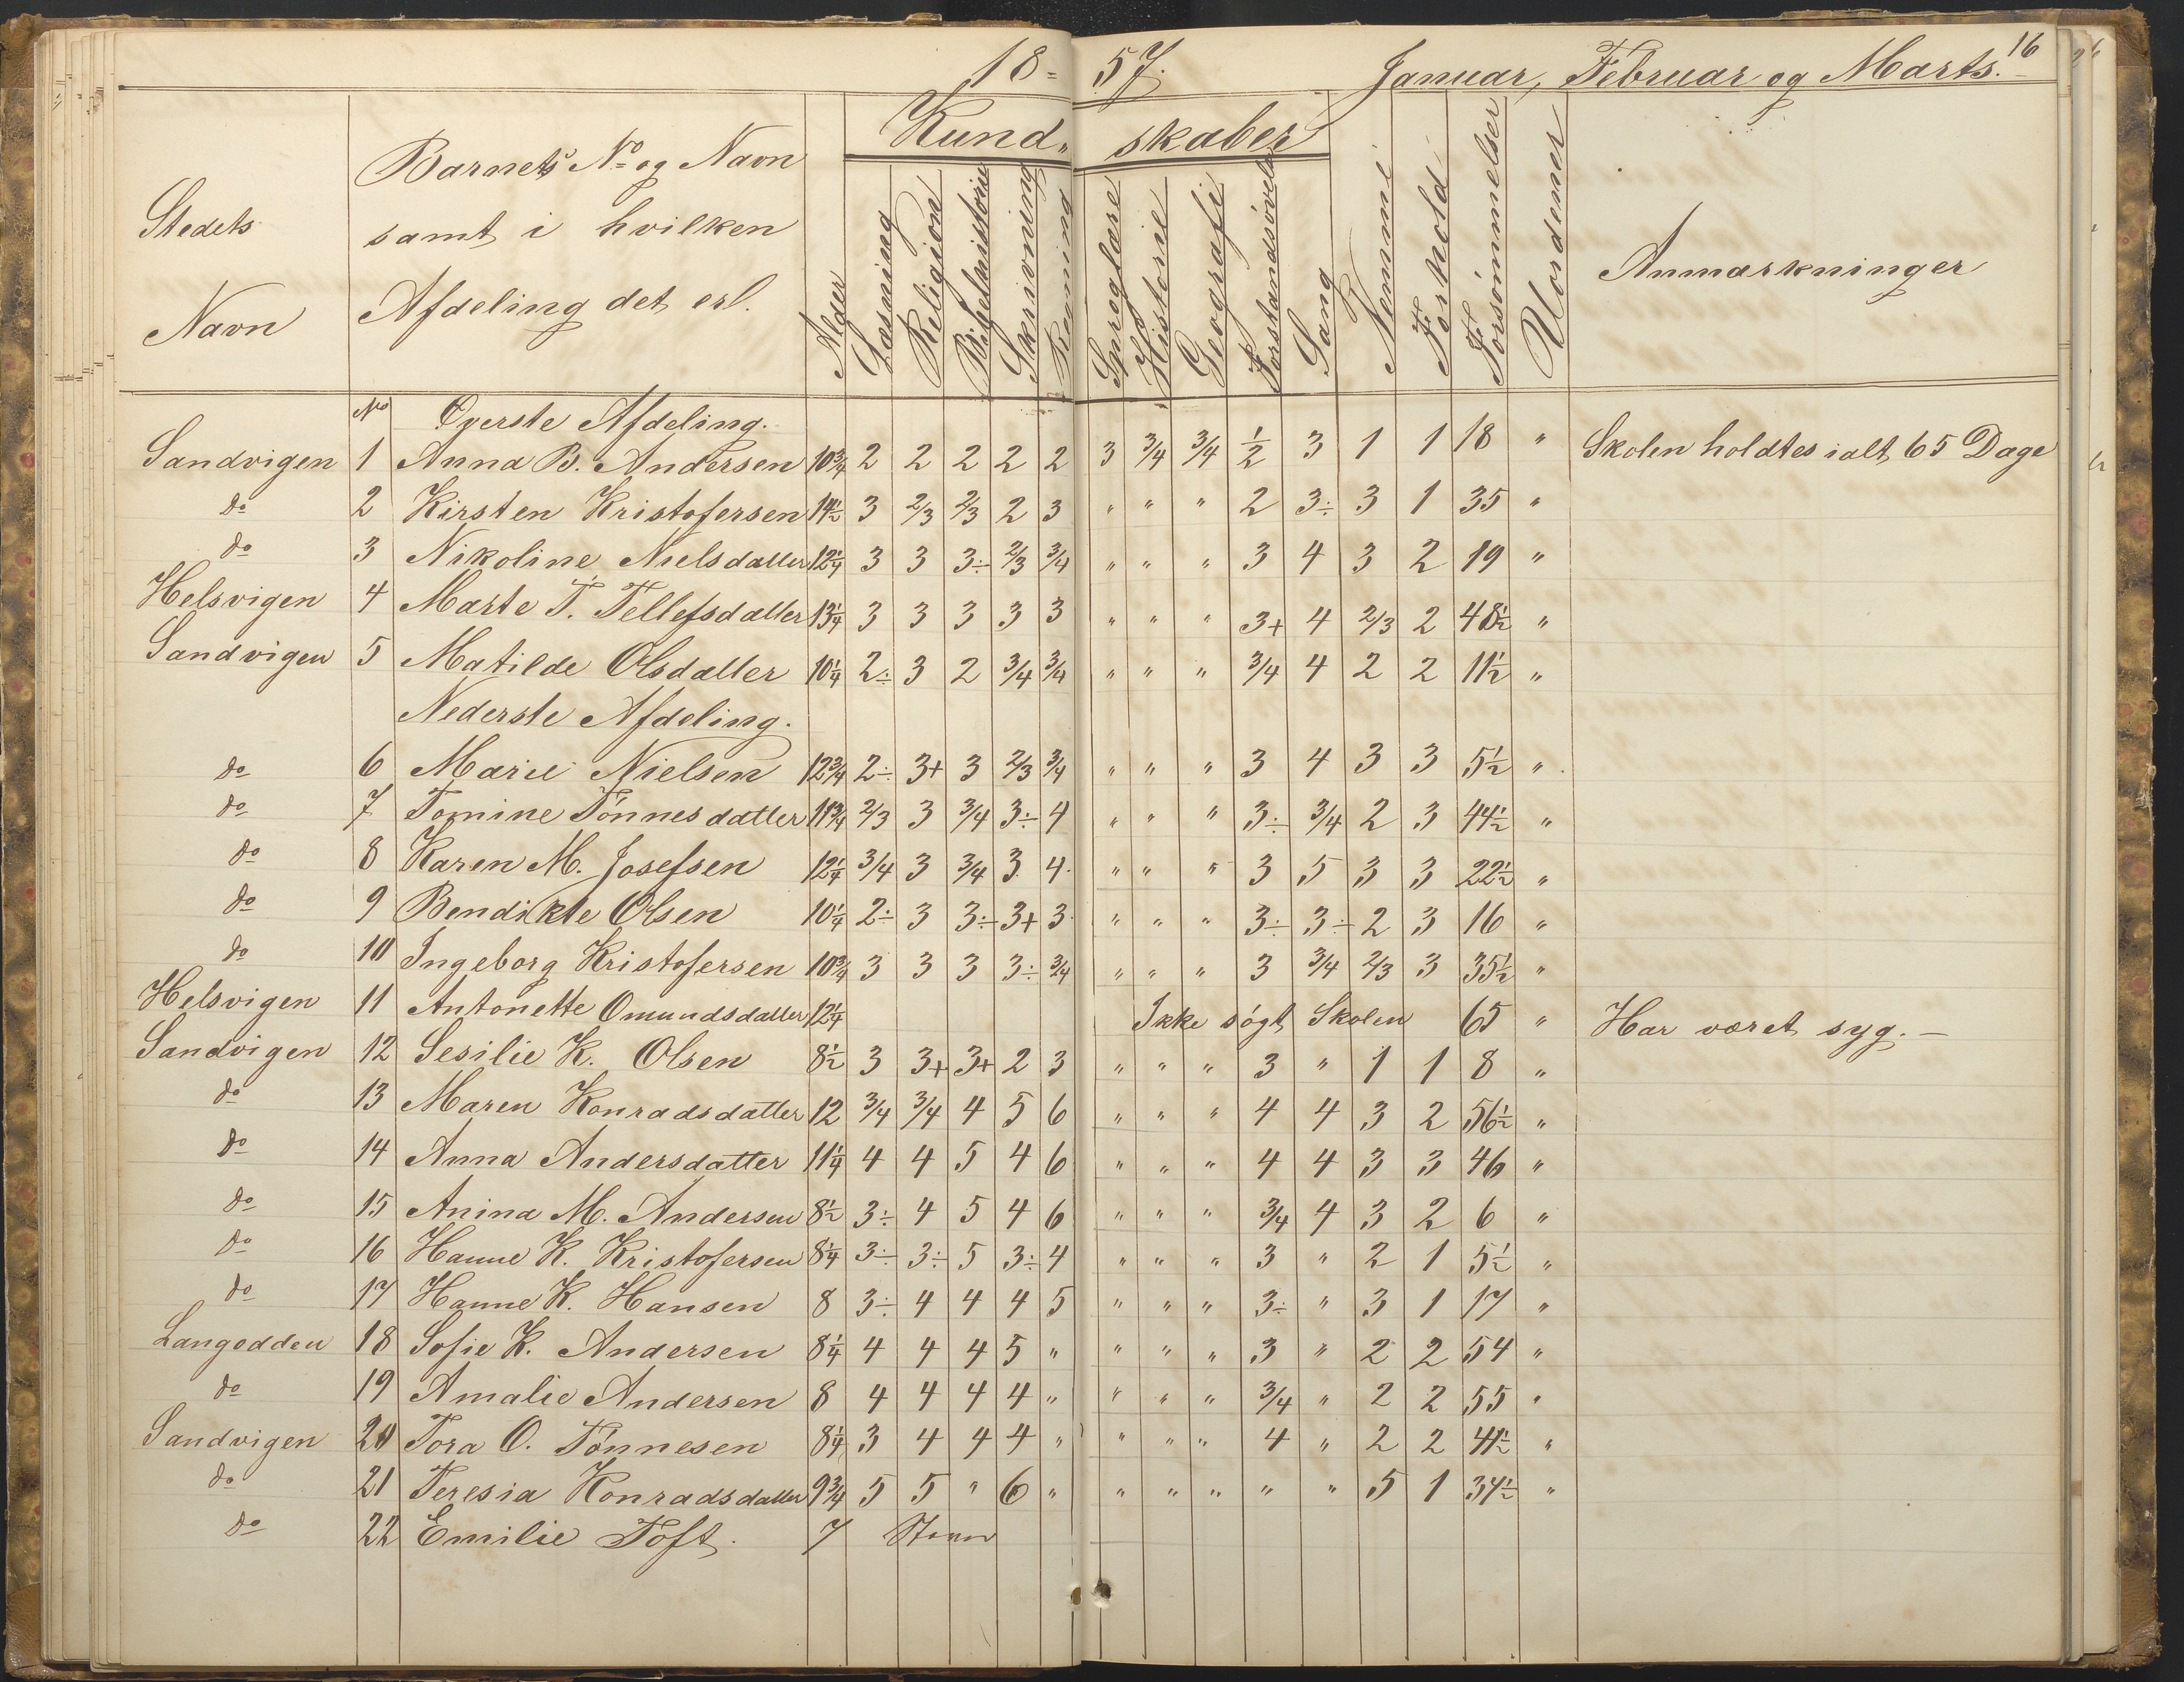 18=57. Januar, Februar og Marts. 16
Stedets Navn
Barnets No og Navn
samt i hvilken
Afdeling det er.
Alder
Kund-skaber
Læsning
Religion
Bibelhistorie
Skrivning
Regning
Sproglære
Historie
Geografi
Forstandsövelse
Sang
Nemme
Forhold
Forsömmelser
Uordener
Anmærkninger
No Överste Afdeling.
Sandvigen 1 Anna B. Andersen 10¾ 2 2 2 2 2 3 ¾ ¾ ½ 3 1 1 18 " Skolen holdtes ialt 65 Dage
do 2 Kirsten Kristofersen 14½ 3 2/3 2/3 2 3 " " " 2 3÷ 3 1 35 "
do 3 Nikoline Nielsdatter 12¼ 3 3 3÷ 2/3 3/4 " " " 3 4 3 2 19 "
Helsvigen 4 Marte T. Tellefsdatter 13¼ 3 3 3 3 3 " " " 3+ 4 2/3 2 48½ "
Sandvigen 5 Matilde Olsdatter 10¼ 2÷ 3 2 3/4 3/4 " " " 3/4 4 2 2 11½ "
Nederste Afdeling.
do 6 Marie Nielsen 12¾ 2÷ 3+ 3 2/3 3/4 " " " 3 4 3 3 5½ "
do 7 Tomine Tönnesdatter 11¾ 2/3 3 3/4 3÷ 4 " " " 3÷ 3/4 2 3 44½ "
do 8 Karen M. Josefsen 12¼ 3/4 3 3/4 3 4 " " " 3 5 3 3 22½ "
do 9 Bendikte Olsen 10¼ 2÷ 3 3÷ 3+ 3 " " " 3÷ 3÷ 2 3 16 "
do 10 Ingeborg Kristofersen 10¾ 3 3 3 3÷ 3/4 " " " 3 3/4 2/3 3 35½ "
Helsvigen 11 Antonette Omundsdatter 12¼ Ikke sögt Skolen 65 " Har været syg. —
Sandvigen 12 Sesilie K. Olsen 8½ 3 3+ 3+ 2 3 " " " 3 " 1 1 8 "
do 13 Maren Konradsdatter 12 3/4 3/4 4 5 6 " " " 4 4 3 2 56½ "
do 14 Anna Andersdatter 11¼ 4 4 5 4 6 " " " 4 4 3 3 46 "
do 15 Anina M. Andersen 8½ 3÷ 4 5 4 6 " " " 3/4 4 3 2 6 "
do 16 Hanne K. Kristofersen 8¼ 3÷ 3÷ 5 3÷ 4 " " " 3 " 2 1 5½ "
do 17 Hanne K. Hansen 8 3÷ 4 4 4 5 " " " 3÷ " 3 1 17 "
Langodden 18 Sofie K. Andersen 8¼ 4 4 4 5 " " " " 3 " 2 2 54 "
do 19 Amalie Andersen 8 4 4 4 4 " " " " 3/4 " 2 2 55 "
Sandvigen 20 Tora O. Tönnesen 8¼ 3 4 4 4 " " " " 4 " 2 2 41½ "
do 21 Teresia Konradsdatter 9¾ 5 5 " 6 " " " " " " 5 1 34½ "
do 22 Emilie Toft. 7